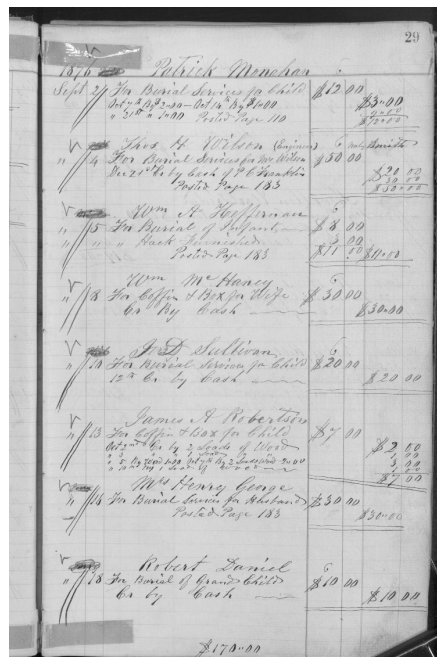 29
1876 Patrick Monehan
Sept 2 For Burial Services for Child $12 00
Oct 7th By $2.00 - Oct 14th By $1.00 $3.00
" 21st " 1.00 Posted Page 110
$12.00
Thos H Wilson (Engineer)
" 4 For Burial Services for Mr Wilson $50 00
Dec 21st Cr by Cash of P C Franklin $20 00
Posted Page 183 30 00
$50.00
Wm A Heffernan
" 5 For Burial of Infant $8 00
" " " Hack Furnished 3 00
Posted Page 183 $11 00 $11.00
Wm McHaney
" 8 For Coffin & Box for Wife $30 00
Cr By Cash $30.00
Jos D Sullivan
" 10 For Burial Services for Child $20 00
12th Cr. by Cash $20 00
James A Robertson
" 13 For Coffin & Box for Child $7 00
Oct 2nd Cr by 2 Loads of Wood $2 00
1 00
3 00
$7 00
Mrs Henry George
" 16 For Burial Services for Husband $30 00
Posted Page 183 $30.00
Robert Daniel
" 18 For Burial of Grand Child $10 00
Cr by Cash $10.00
$170.00